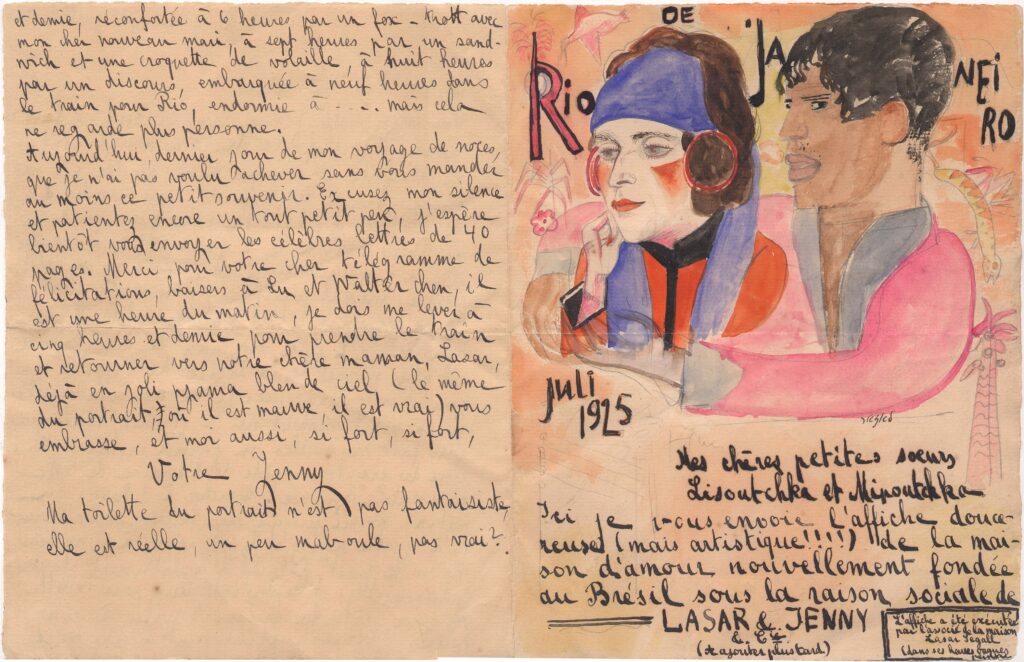 et demie, réconfortée à 6 heures par un fox-trott avec
mon cher nouveau mari, à sept heures par un sand-
wich et une croquette de volaille, à huit heures
par un discours, embarquée à neuf heures dans
le train pour Rio, endormie à ..... mais cela
ne regarde plus personne.
Aujourd'hui, dernier jour de mon voyage de noces,
que je n'ai pas voulu achever sans vous mander
au moins ce petit souvenir. Excusez mon silence
et patientez encore un tout petit peu, j'espère
bientôt vous envoyer les célèbres lettres de 40
pages. Merci pour votre cher télégramme de
félicitations, baisers à Lu et Walterchen, il
est une heure du matin, je dois me lever à
cinq heures et demie pour prendre le train
et retourner vers notre chère maman, Lasar,
déjà en joli pyjama bleu de ciel (le même
du portrait, où il est mauve, il est vrai) vous
embrasse, et moi aussi, si fort, si fort,
Votre Jenny
Ma toilette du portrait n'est pas fantaisiste,
elle est réelle, un peu maboule, pas vrai?
RIO
DE
JA
NEI
RO
JULI
1925
Mes chères petites soeurs
Lisoutchka et Mipoutchka
Ici je vous envoie l'affiche douce-
reuse (mais artistique!!!!) de la mai-
son d'amour nouvellement fondée
au Brésil sous la raison sociale de
LASAR & JENNY
& Cie
(à ajouter plus tard)
L'affiche a été exécutée
par l'associé de la maison
Lasar Segall
(dans ses heures